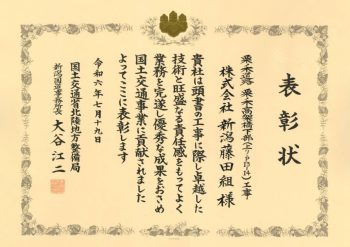 表彰状
栗ノ木道路 栗ノ木高架橋下部工事
株式会社 新潟藤田組 様
貴社は頭書の工事に際し卓越した
技術と旺盛なる責任感をもってよく
業務を完遂し優秀な成果をおさめ
国土交通事業に貢献されました
よってここに表彰します
令和六年七月十九日
国土交通省北陸地方整備局
新潟国道事務所長 大谷江二